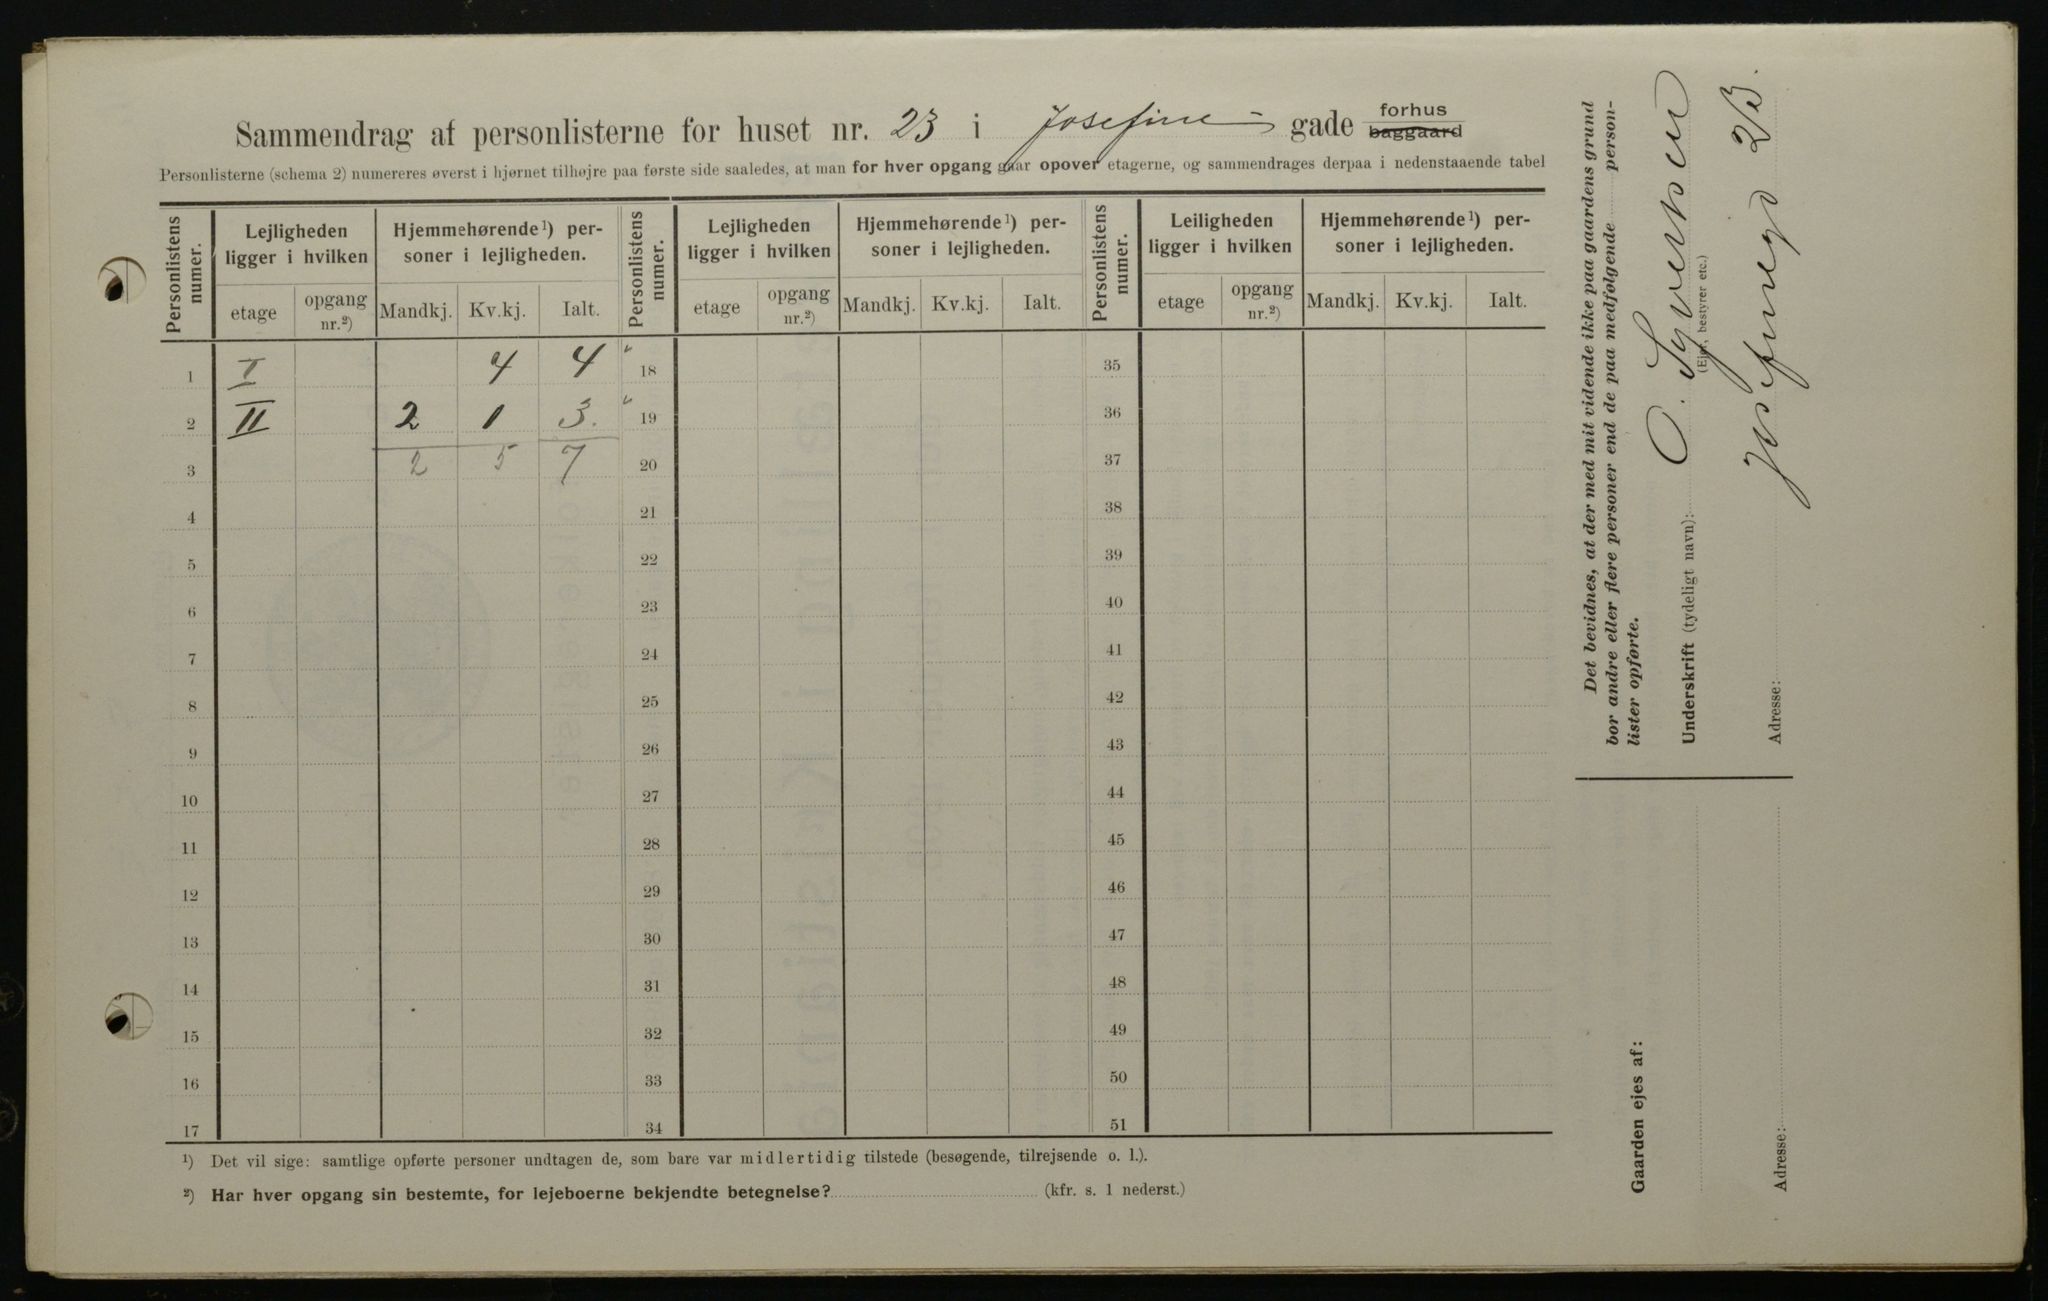 Sammendrag af personlisterne for huset nr. 23 i Josefine- gade forhus baggaard
Personlisterne (schema 2) numereres øverst i hjørnet tilhøjre paa første side saaledes, at man for hver opgang gaar opover etagerne, og sammendrages derpaa i nedenstaaende tabel
Personlistens numer.
Lejligheden ligger i hvilken
Hjemmehørende¹) personer i lejligheden.
Personlistens numer.
Lejligheden ligger i hvilken
Hjemmehørende¹) personer i lejligheden.
Personlistens numer.
Leiligheden ligger i hvilken
Hjemmehørende¹) personer i lejligheden.
etage opgang nr.²) Mandkj. Kv.kj. Ialt. etage opgang nr.²) Mandkj. Kv.kj. Ialt. etage opgang nr.²) Mandkj. Kv.kj. Ialt.
1 I 4 4 18 35
2 II 2 1 3. 19 36
3 2 5 7 20 37
4 21 38
5 22 39
6 23 40
7 24 41
8 25 42
9 26 43
10 27 44
11 28 45
12 29 46
13 30 47
14 31 48
15 32 49
16 33 50
17 34 51
¹) Det vil sige: samtlige opførte personer undtagen de, som bare var midlertidig tilstede (besøgende, tilrejsende o. l.).
²) Har hver opgang sin bestemte, for lejeboerne bekjendte betegnelse? (kfr. s. 1 nederst.)
Det bevidnes, at der med mit vidende ikke paa gaardens grund
bor andre eller flere personer end de paa medfølgende person-
lister opførte.
Underskrift (tydeligt navn): O. Syvertsen
(Ejer, bestyrer etc.)
Adresse: Josefinegd 23.
Gaarden ejes af:
Adresse: